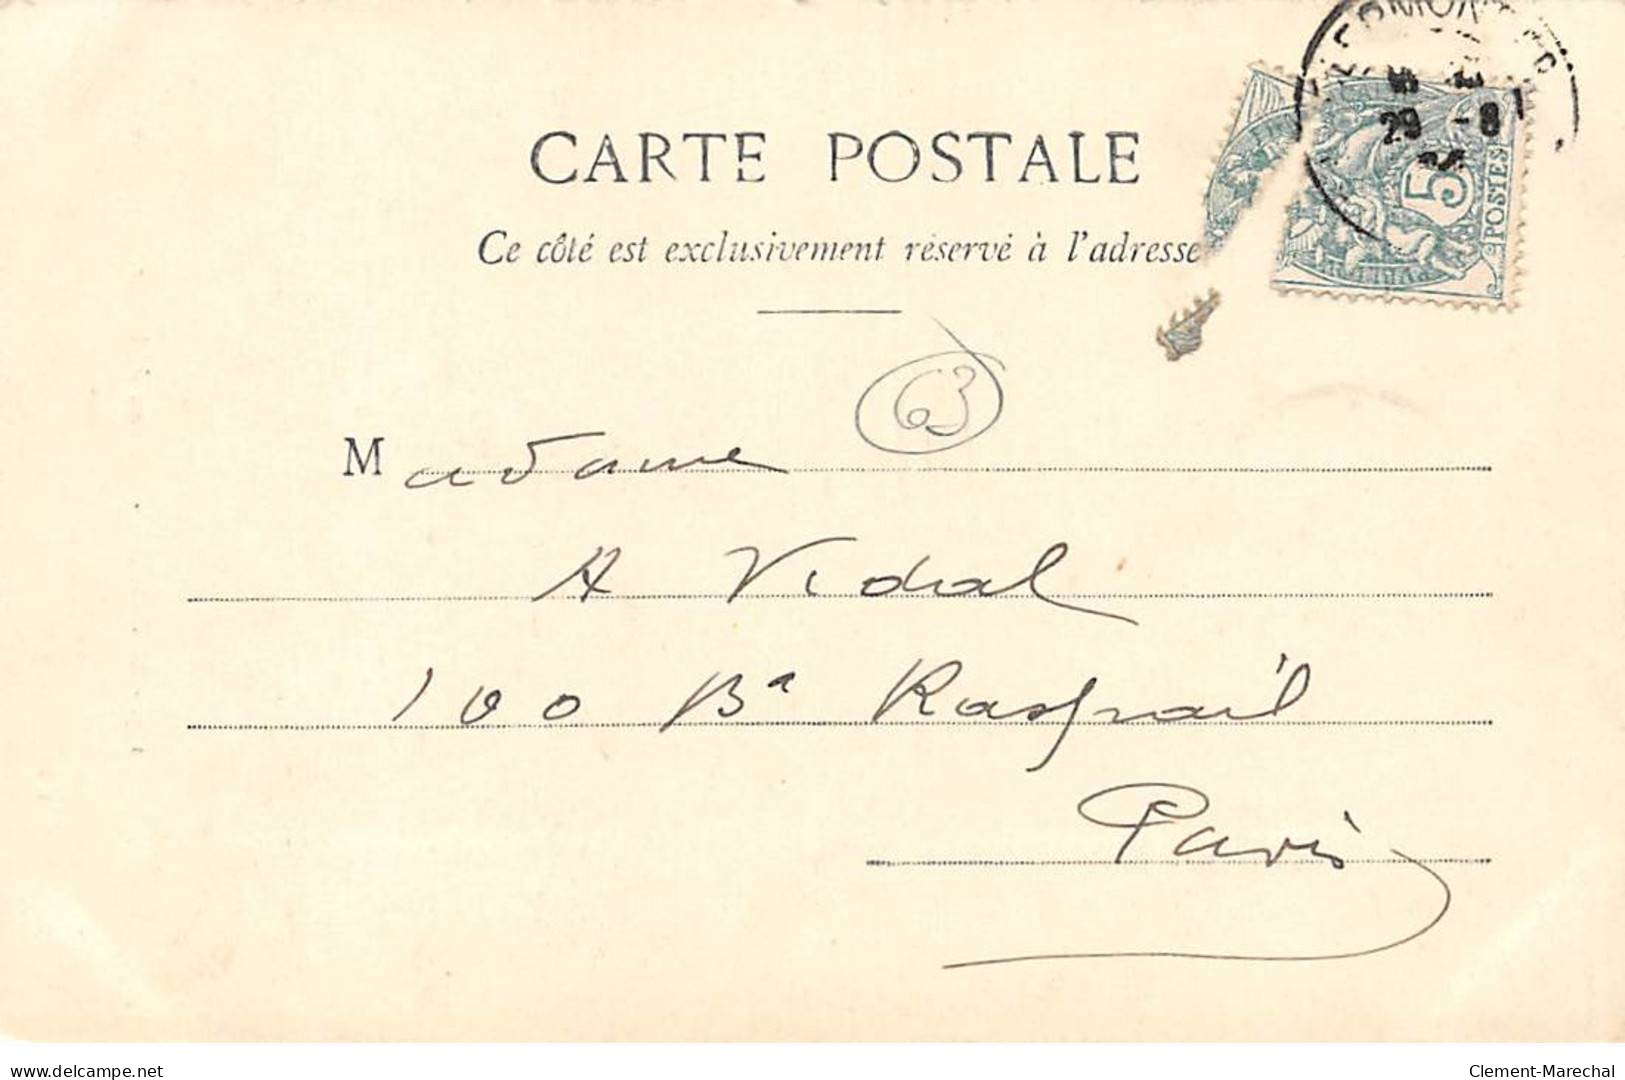 CARTE POSTALE
Ce côté est exclusivement réservé à l'adresse
5
POSTES
29 -8
63
Madame
A Vidal
100 Bd Raspail
Paris
delcampe.net
Clement-Marechal